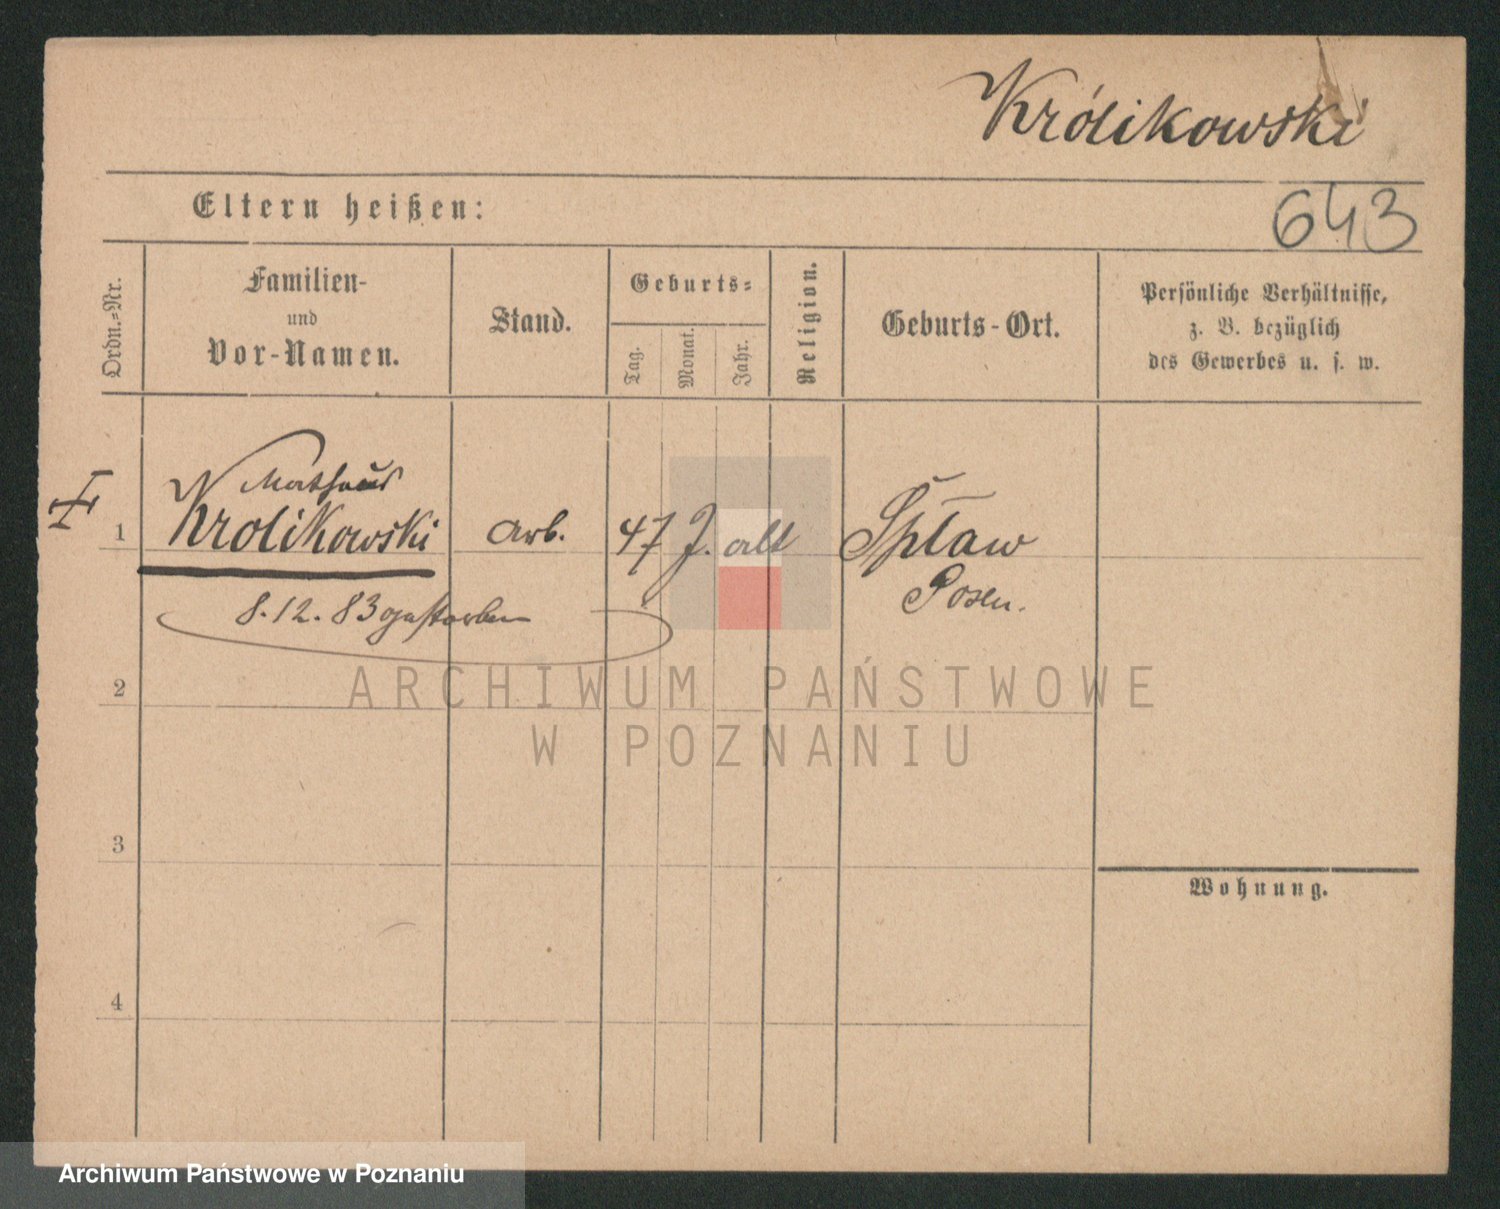 Królikowski
643
Eltern heißen:
Ordn.-Nr.
Familien-
und
Vor-Namen.
Stand.
Geburts-
Tag.
Monat.
Jahr.
Religion.
Geburts-Ort.
Persönliche Verhältnisse,
z. B. bezüglich
des Gewerbes u. s. w.
Mathäus
1 Krolikowski Arb. 47 J. alt Spław
Posen.
8.12.83 gestorben
2
3
4
Wohnung.
ARCHIWUM PAŃSTWOWE
W POZNANIU
Archiwum Państwowe w Poznaniu